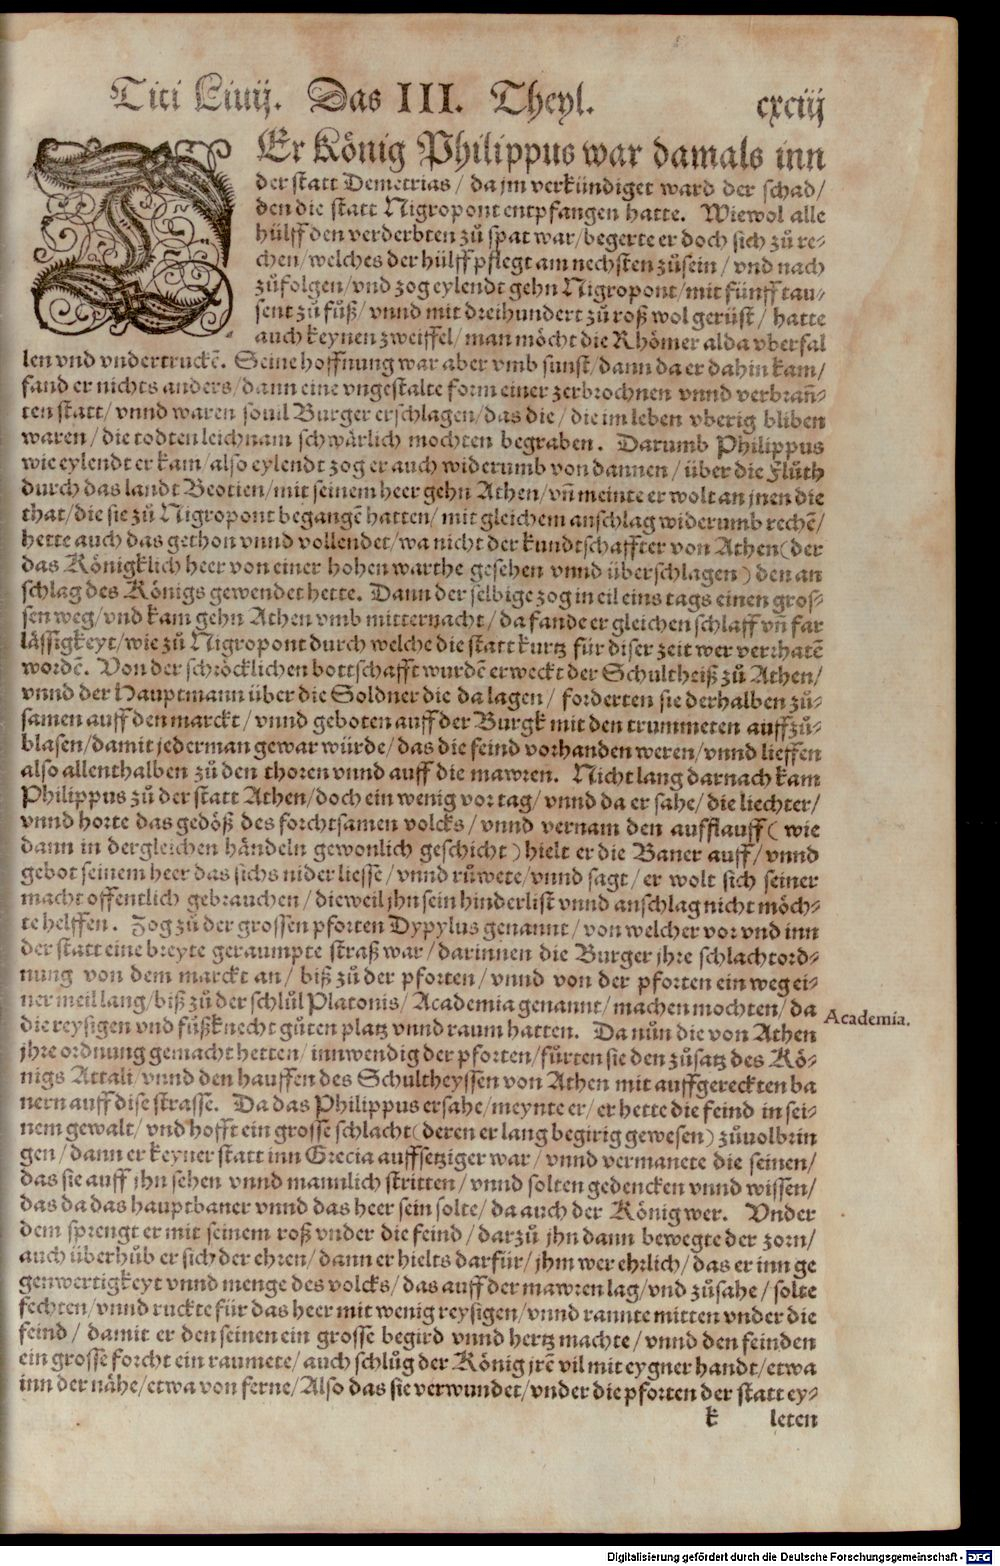 Titi Liuij. Das III. Theyl. cxciij
DEr König Philippus war damals inn
der statt Demetrias / da jm verkündiget ward der schad/
den die statt Nigropont entpfangen hatte. Wiewol alle
hülff den verderbten zů spat war/begerte er doch sich zů re-
chen/welches der hülff pflegt am nechsten zůsein / vnd nach
zůfolgen/vnd zog eylendt gehn Nigropont/mit fünff tau-
sent zů fůß/vnnd mit dreihundert zů roß wol gerüst/ hatte
auch keynen zweiffel/man möcht die Rhömer alda vberfal
len vnd vndertruckē. Seine hoffnung war aber vmb sunst/dann da er dahin kam/
fand er nichts anders/dann eine vngestalte form einer zerbrochnen vnnd verbrañ-
ten statt/vnnd waren souil Burger erschlagen/das die/die im leben vberig bliben
waren/die todten leichnam schwärlich mochten begraben. Darumb Philippus
wie eylendt er kam/also eylendt zog er auch widerumb von dannen/über die Flůth
durch das landt Beotien/mit seinem heer gehn Athen/vñ meinte er wolt an jnen die
that/die sie zů Nigropont begangē hatten/mit gleichem anschlag widerumb rechē/
hette auch das gethon vnnd vollendet/wa nicht der kundtschaffter von Athen (der
das Königklich heer von einer hohen warthe gesehen vnnd überschlagen) den an
schlag des Königs gewendet hette. Dann der selbige zog in eil eins tags einen gros-
sen weg/vnd kam gehn Athen vmb mitternacht/da fande er gleichen schlaff vñ far
lässigkeyt/wie zů Nigropont durch welche die statt kurtz für diser zeit wer verrhatē
wordē. Von der schröcklichen bottschafft wurdē erweckt der Schultheiß zů Athen/
vnnd der Hauptmann über die Soldner die da lagen/ forderten sie derhalben zů-
samen auff den marckt/vnnd geboten auff der Burgk mit den trummeten auffzů-
blasen/damit jederman gewar würde/das die feind vorhanden weren/vnnd lieffen
also allenthalben zů den thoren vnnd auff die mawren. Nicht lang darnach kam
Philippus zů der statt Athen/doch ein wenig vor tag/vnnd da er sahe/die liechter/
vnnd horte das gedöß des forchtsamen volcks/vnnd vernam den aufflauff (wie
dann in dergleichen händeln gewonlich geschicht) hielt er die Baner auff/vnnd
gebot seinem heer das sichs nider liesse/vnnd růwete/vnnd sagt/er wolt sich seiner
macht offentlich gebrauchen/dieweil jhn sein hinderlist vnnd anschlag nicht möch-
te helffen. Zog zů der grossen pforten Dypylus genannt/von welcher vor vnd inn
der statt eine breyte geraumpte straß war/darinnen die Burger jhre schlachtord-
nung von dem marckt an/ biß zů der pforten/vnnd von der pforten ein weg ei-
ner meil lang/biß zů der schůl Platonis/Academia genannt/machen mochten/da
die reysigen vnd fůßknecht gůten platz vnnd raum hatten. Da nůn die von Athen
jhre ordnung gemacht hetten/innwendig der pforten/fůrten sie den zůsatz des Kö-
nigs Attali/vnnd den hauffen des Schultheyssen von Athen mit auffgereckten ba
nern auff dise strasse. Da das Philippus ersahe/meynte er/er hette die feind in sei-
nem gewalt/vnd hofft ein grosse schlacht (deren er lang begirig gewesen) zůuolbrin
gen/dann er keyner statt inn Grecia auffsetziger war/vnnd vermanete die seinen/
das sie auff jhn sehen vnnd mannlich stritten/vnnd solten gedencken vnnd wissen/
das da das hauptbaner vnnd das heer sein solte/da auch der König wer. Vnder
dem sprengt er mit seinem roß vnder die feind/darzů jhn dann bewegte der zorn/
auch überhůb er sich der ehren/dann er hielts darfür/jhm wer ehrlich/das er inn ge
genwertigkeyt vnnd menge des volcks/das auff der mawren lag/vnd zůsahe/solte
fechten/vnnd ruckte für das heer mit wenig reysigen/vnnd rannte mitten vnder die
feind/ damit er den seinen ein grosse begird vnnd hertz machte/vnnd den feinden
ein grosse forcht ein raumete/auch schlůg der König jrē vil mit eygner handt/etwa
inn der nähe/etwa von ferne/Also das sie verwundet/vnder die pforten der statt ey-
k leten
Academia.
Digitalisierung gefördert durch die Deutsche Forschungsgemeinschaft - DFG